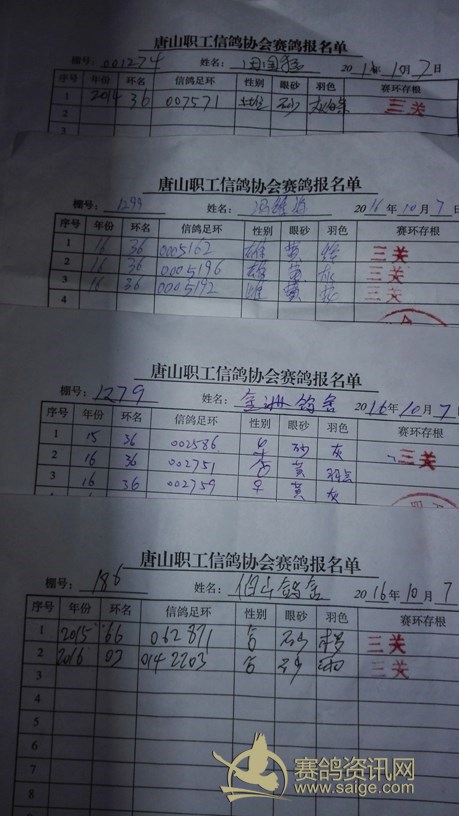 唐山职工信鸽协会赛鸽报名单
棚号: 001274 姓名: 2016年10月7日
序号 年份 环名 信鸽足环 性别 眼砂 羽色 赛环存根
1 2014 36 007571 雄 砂 三关
2
唐山职工信鸽协会赛鸽报名单
棚号: 1299 姓名: 2016年10月7日
序号 年份 环名 信鸽足环 性别 眼砂 羽色 赛环存根
1 16 36 0005162 雄 黄 三关
2 16 36 0005196 雄 黄 灰 三关
3 16 36 0005192 雌 黄 花 三关
4
唐山职工信鸽协会赛鸽报名单
棚号: 1279 姓名: 2016年10月7
序号 年份 环名 信鸽足环 性别 眼砂 羽色 赛环存根
1 15 36 002586 ♀ 砂 灰 三关
2 16 36 002751 黄 羽点
3 16 36 002759 ♀ 黄 灰
唐山职工信鸽协会赛鸽报名单
棚号: 186 姓名: 2016年10月7
序号 年份 环名 信鸽足环 性别 眼砂 羽色 赛环存根
1 2015 66 062871 砂 三关
2 2016 03 0142203 砂 雨 三关
3
4
5
6
7
8
赛鸽资讯网
www.saige.com